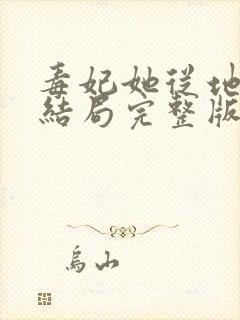 毒妃她從地
結局完整版
烏山